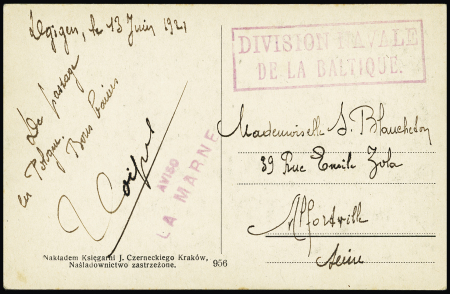 le 13 Juin 1921
De passage
en Pologne.
Bons baisers
AVISO
LA MARNE
Nakładem Księgarni J. Czerneckiego Kraków,
Naśladownictwo zastrzeżone.
956
DIVISION NAVALE
DE LA BALTIQUE.
Mademoiselle S. Blancheton
39 Rue Emile Zola
Alfortville
Seine